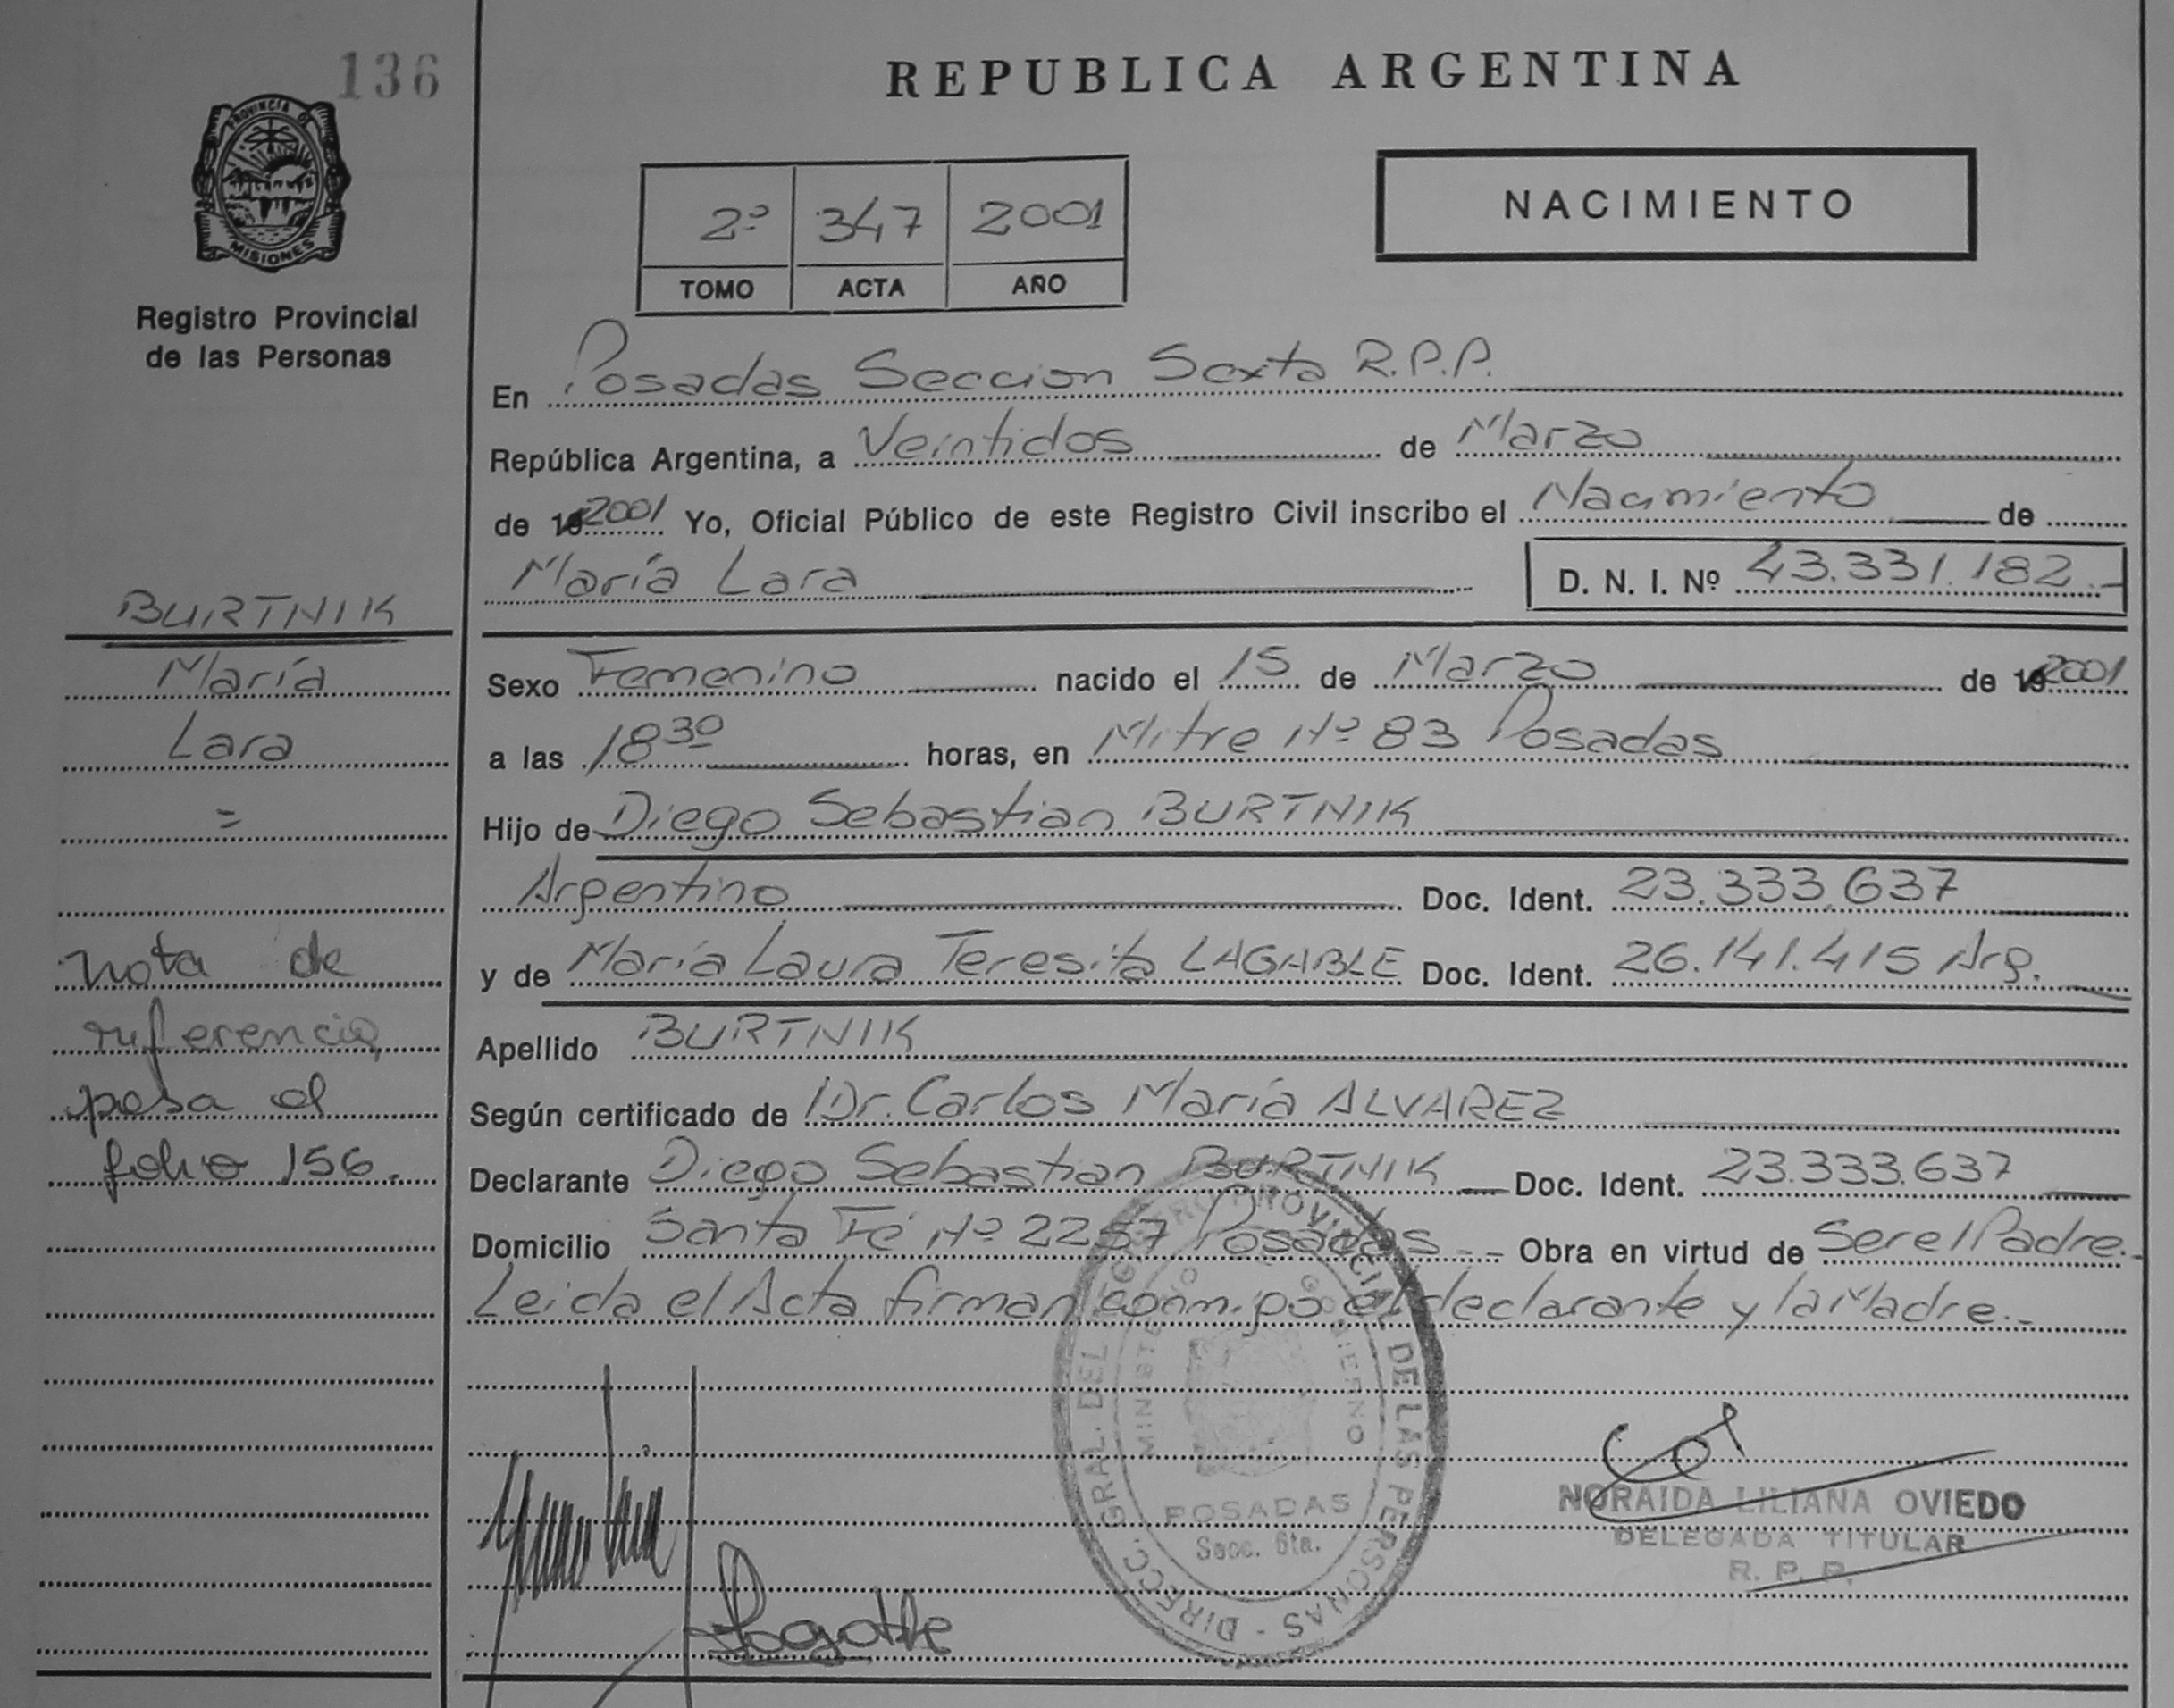 136
REPUBLICA ARGENTINA
PROVINCIA DE
MISIONES
Registro Provincial
de las Personas
NACIMIENTO
2º 347 2001
TOMO ACTA AÑO
En Posadas Seccion Sexta R.P.P.
República Argentina, a Veintidos de Marzo
de 19 2001 Yo, Oficial Público de este Registro Civil inscribo el Nacimiento de
María Lara D. N. I. Nº 43.331.182.-
BURTNIK
María
Lara
=
Sexo Femenino nacido el 15 de Marzo de 19 2001
a las 18 30 horas, en Mitre Nº 83 Posadas
Hijo de Diego Sebastian BURTNIK
Argentino Doc. Ident. 23.333.637
y de María Laura Teresita LAGABLE Doc. Ident. 26.141.415 Arg.
Apellido BURTNIK
Según certificado de Dr. Carlos María ALVAREZ
Declarante Diego Sebastian BURTNIK Doc. Ident. 23.333.637
Domicilio Santa Fé Nº 2257 Posadas -- Obra en virtud de Ser el Padre.-
Leida el Acta firman conmigo el declarante y la Madre.-
nota de
referencia
pasa al
folio 156.
DIRECC. GRAL. DEL REGISTRO PROVINCIAL DE LAS PERSONAS -
MINISTERIO DE GOBIERNO
POSADAS
Secc. 6ta.
NORAIDA LILIANA OVIEDO
DELEGADA TITULAR
R. P. P.
Lagable